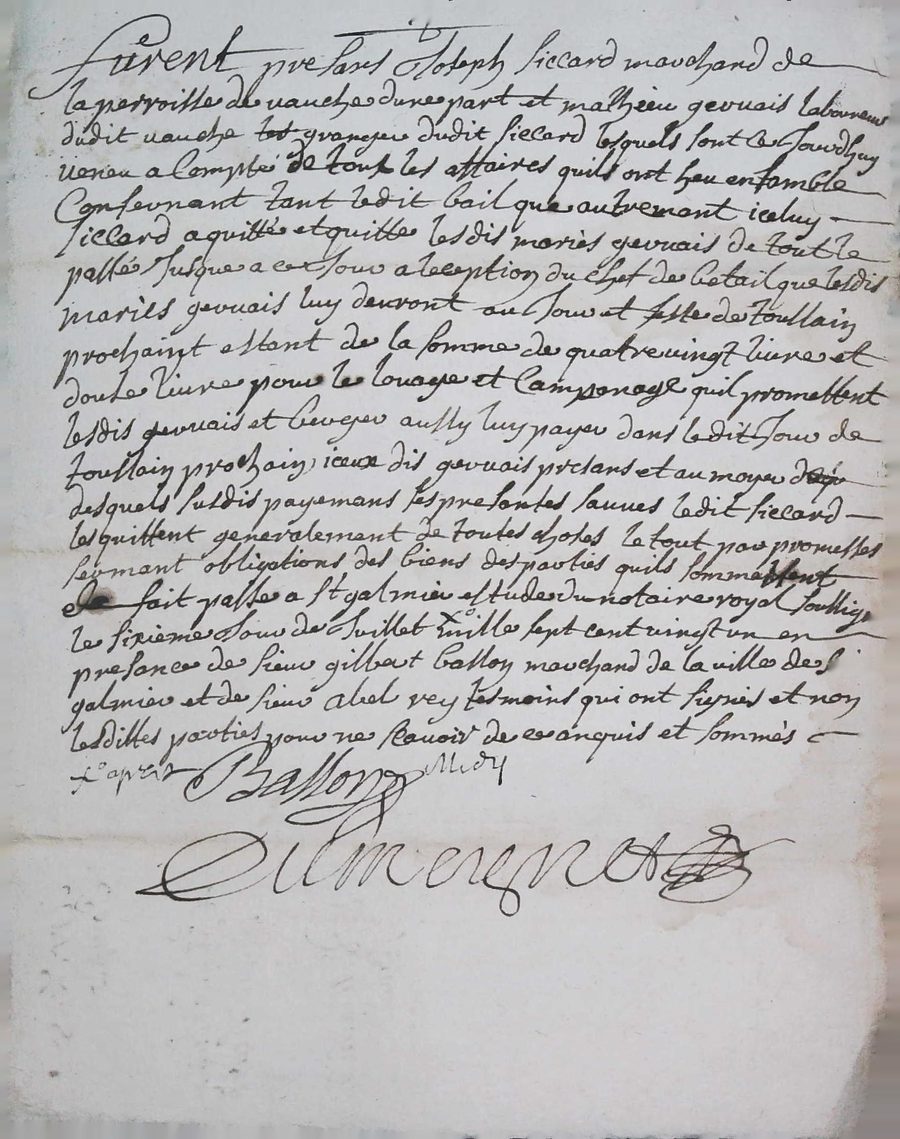 furent presans Joseph siccard marchand de
la perroisse de vauche dune part et mathieu gervuais laboureur
dudit vauche granger dudit siccard lesquels sont ce Jourdhuy
veneu a Compte de tous les affaires quils ont heu ensamble
Consernant tant ledit bail que autremant iceluy
siccard a quitté et quitte lesdis mariès gervuais de tout le
passé Jusque a ce Jour a leception du chef de betail que lesdis
mariès gervuais luy devront au Jour et feste de toussain
prochaint estant de la somme de quatrevingt livre et
douse livre pour le louage et Camponage quil promettent
lesdis gervuais et berger aussy luy payer dans ledit Jour de
toussain prochain, iceux dis gervuais presans et au moyen
desquels susdis payemans ses presantes sauves ledit siccard
les quittent generalement de toutes choses le tout par promesses
sermant obligations des biens desparties quils sommettent
fait passe a st galmier estude du notaire royal soussigne
le sixieme Jour de Juillet mille sept cent vingt un en
presance de sieur gilbert ballon marchand de la ville de st
galmier et de sieur abel rey tesmoins qui ont signès et non
lesdittes parties pour ne scavoir de ce anquis et sommès
Ballon